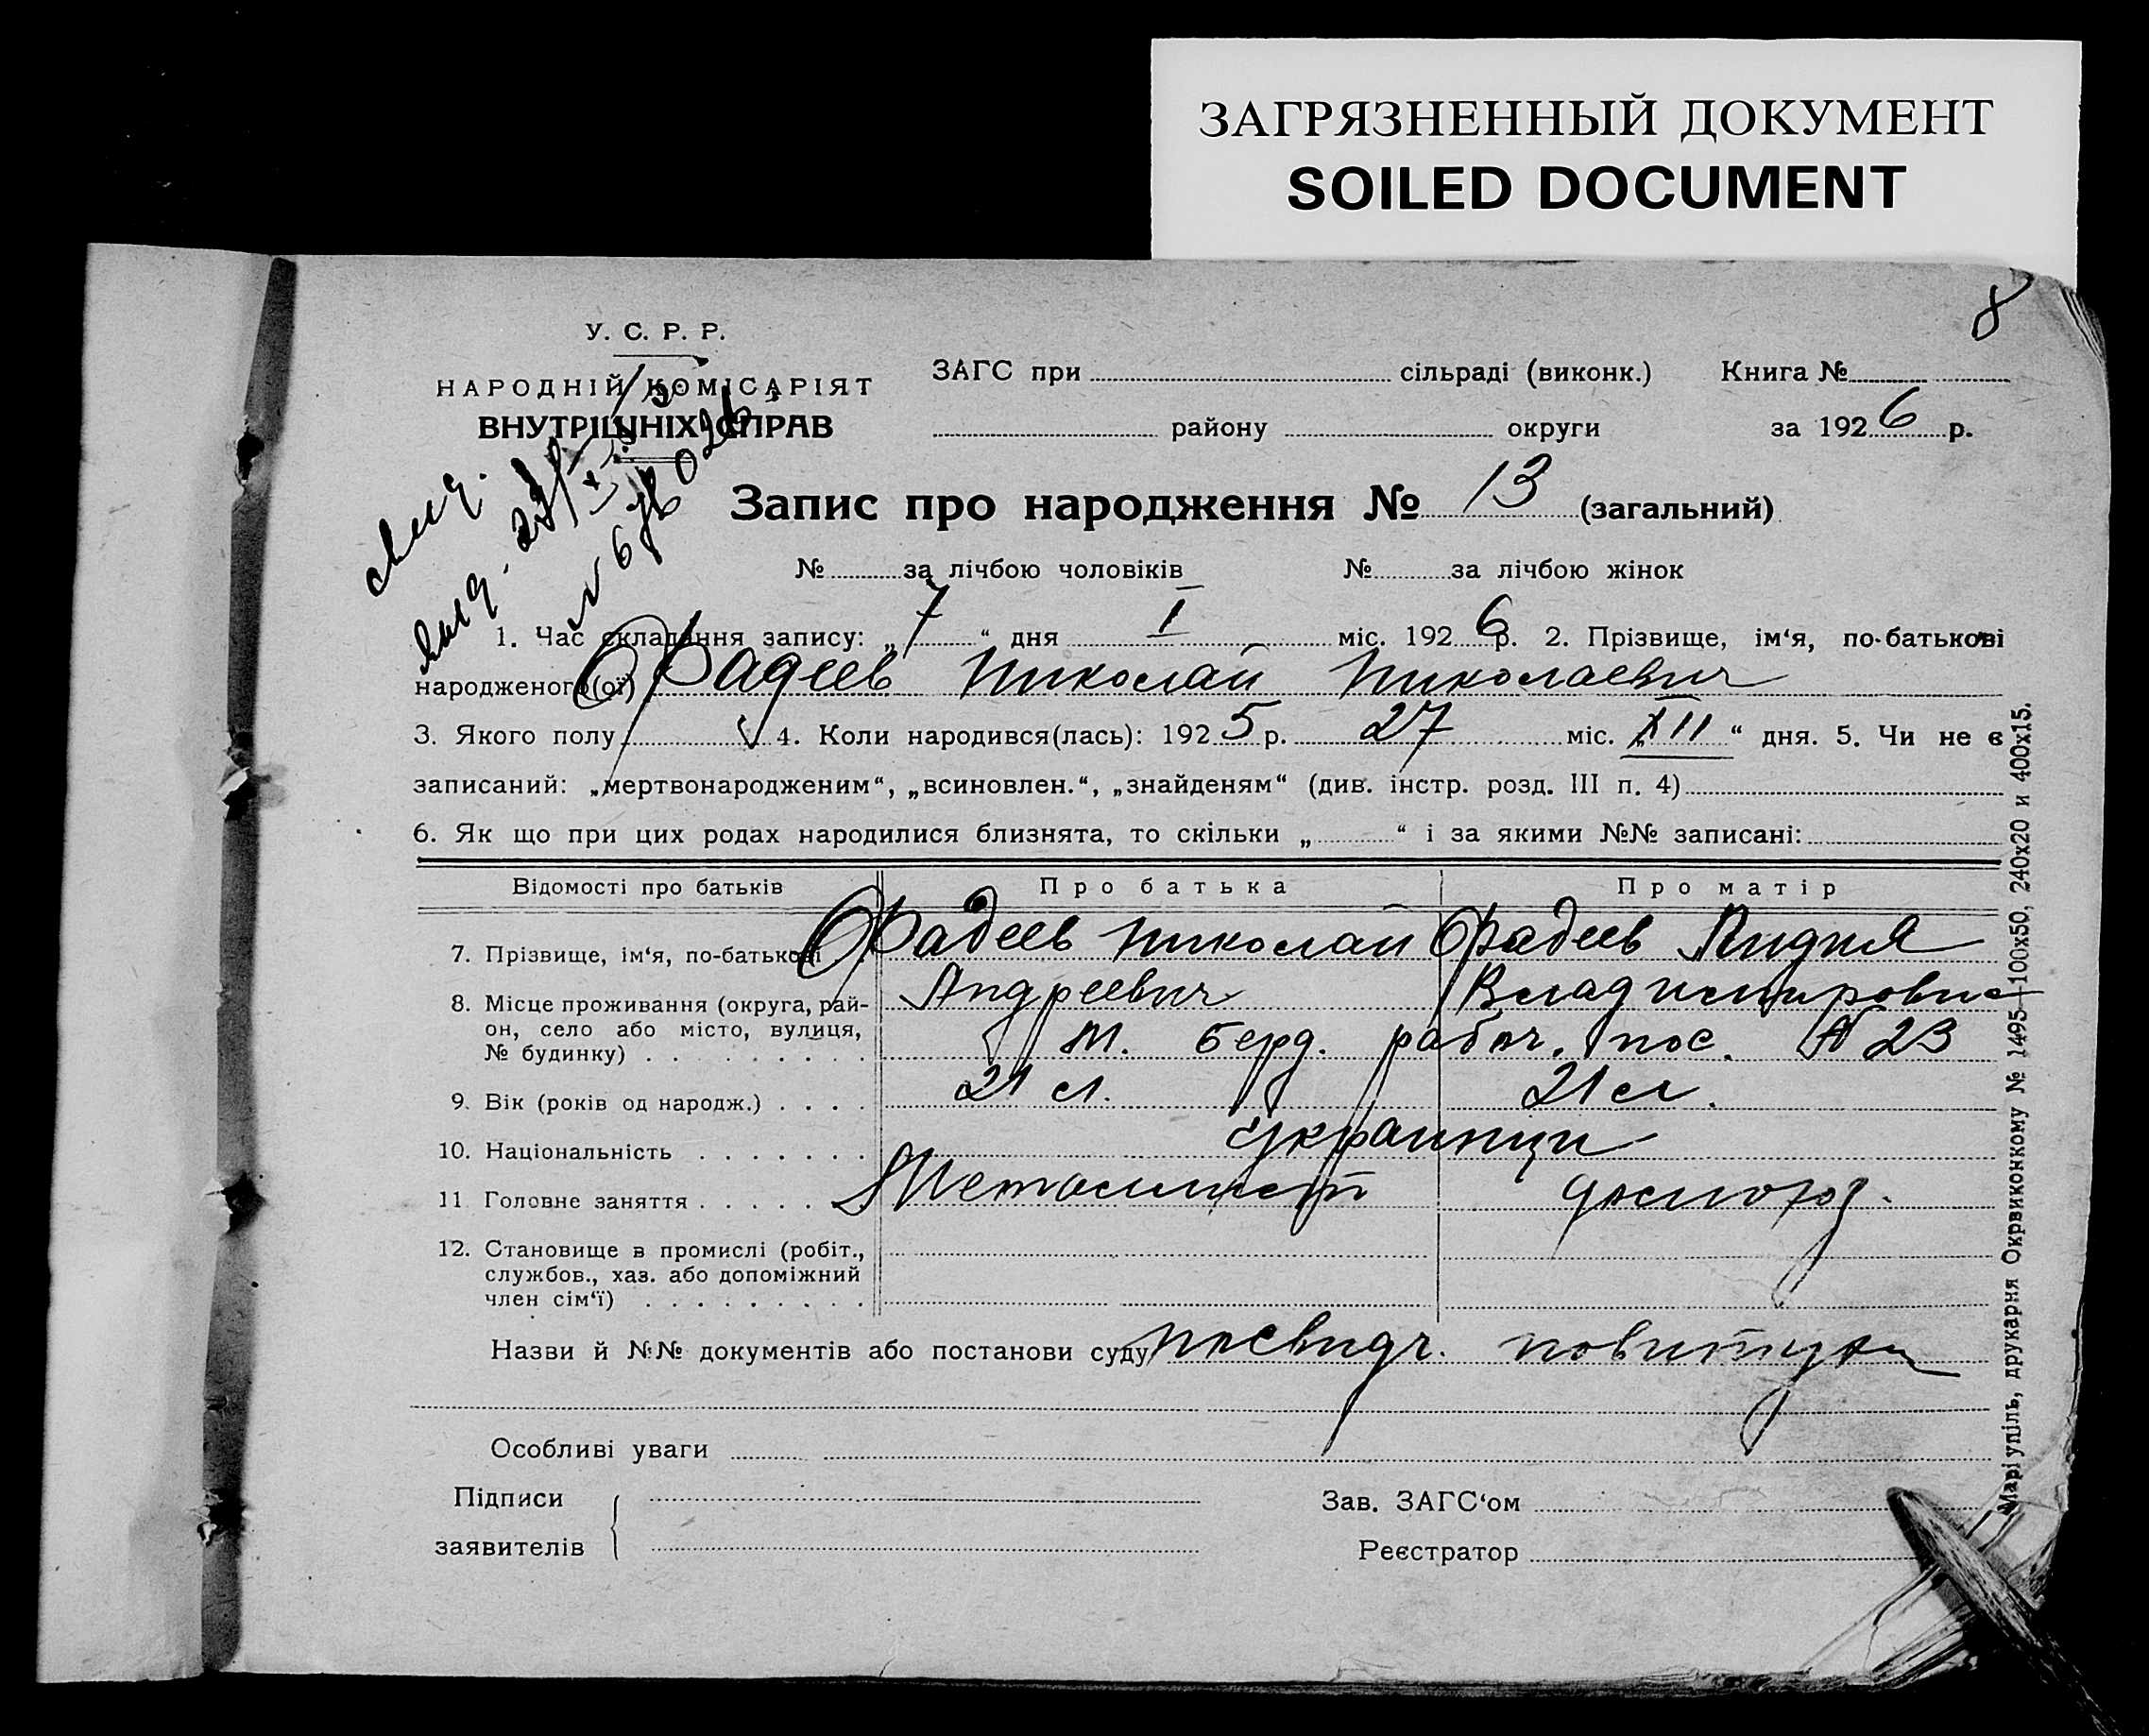 ЗАГРЯЗНЕННЫЙ ДОКУМЕНТ
SOILED DOCUMENT
8
У. С. Р. Р.
НАРОДНІЙ КОМІСАРІЯТ
ВНУТРІШНІХ СПРАВ
ЗАГС при сільраді (виконк.) Книга №
району округи за 1926 р.
Запис про народження № 13 (загальний)
№ за лічбою чоловіків № за лічбою жінок
1. Час складання запису: „7“ дня I міс. 1926 р. 2. Прізвище, ім‘я, по-батькові
народженого(ої) Фадеев Николай Николаевич
3. Якого полу 4. Коли народився(лась): 1925 р. 27 міс. „XII“ дня. 5. Чи не є
записаний: „мертвонародженим“, „всиновлен.“, „знайденям“ (див. інстр. розд. III п. 4)
6. Як що при цих родах народилися близнята, то скільки „ “ і за якими №№ записані:
Відомості про батьків Про батька Про матір
7. Прізвище, ім‘я, по-батькові Фадеев Николай Фадеев Лидия
Андреевич Владимировна
8. Місце проживання (округа, рай-
он, село або місто, вулиця,
№ будинку) . . . . . . . . М. Берд. рабоч. пос. № 23
9. Вік (років од народж.) . . . . 21 л. 21 л.
10. Національність . . . . . . . украинци
11 Головне заняття . . . . . Металист домогоз.
12. Становище в промислі (робіт.,
службов., хаз. або допоміжний
член сім‘ї) . . . . . . . . .
Назви й №№ документів або постанови суду посвидч. повитухи
Особливі уваги
Підписи
заявителів
Зав. ЗАГС‘ом
Реєстратор
Маріупіль, друкарня Окрвиконкому № 1495—100х50, 240х20 и 400х15.